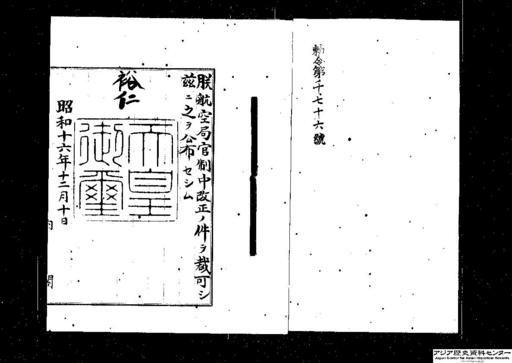 勅令第千七十六號
朕航空局官制中改正ノ件ヲ裁可シ
玆ニ之ヲ公布セシム
裕仁
天皇
御璽
昭和十六年十二月十日
内閣
アジア歴史資料センター
Japan Center for Asian Historical Records